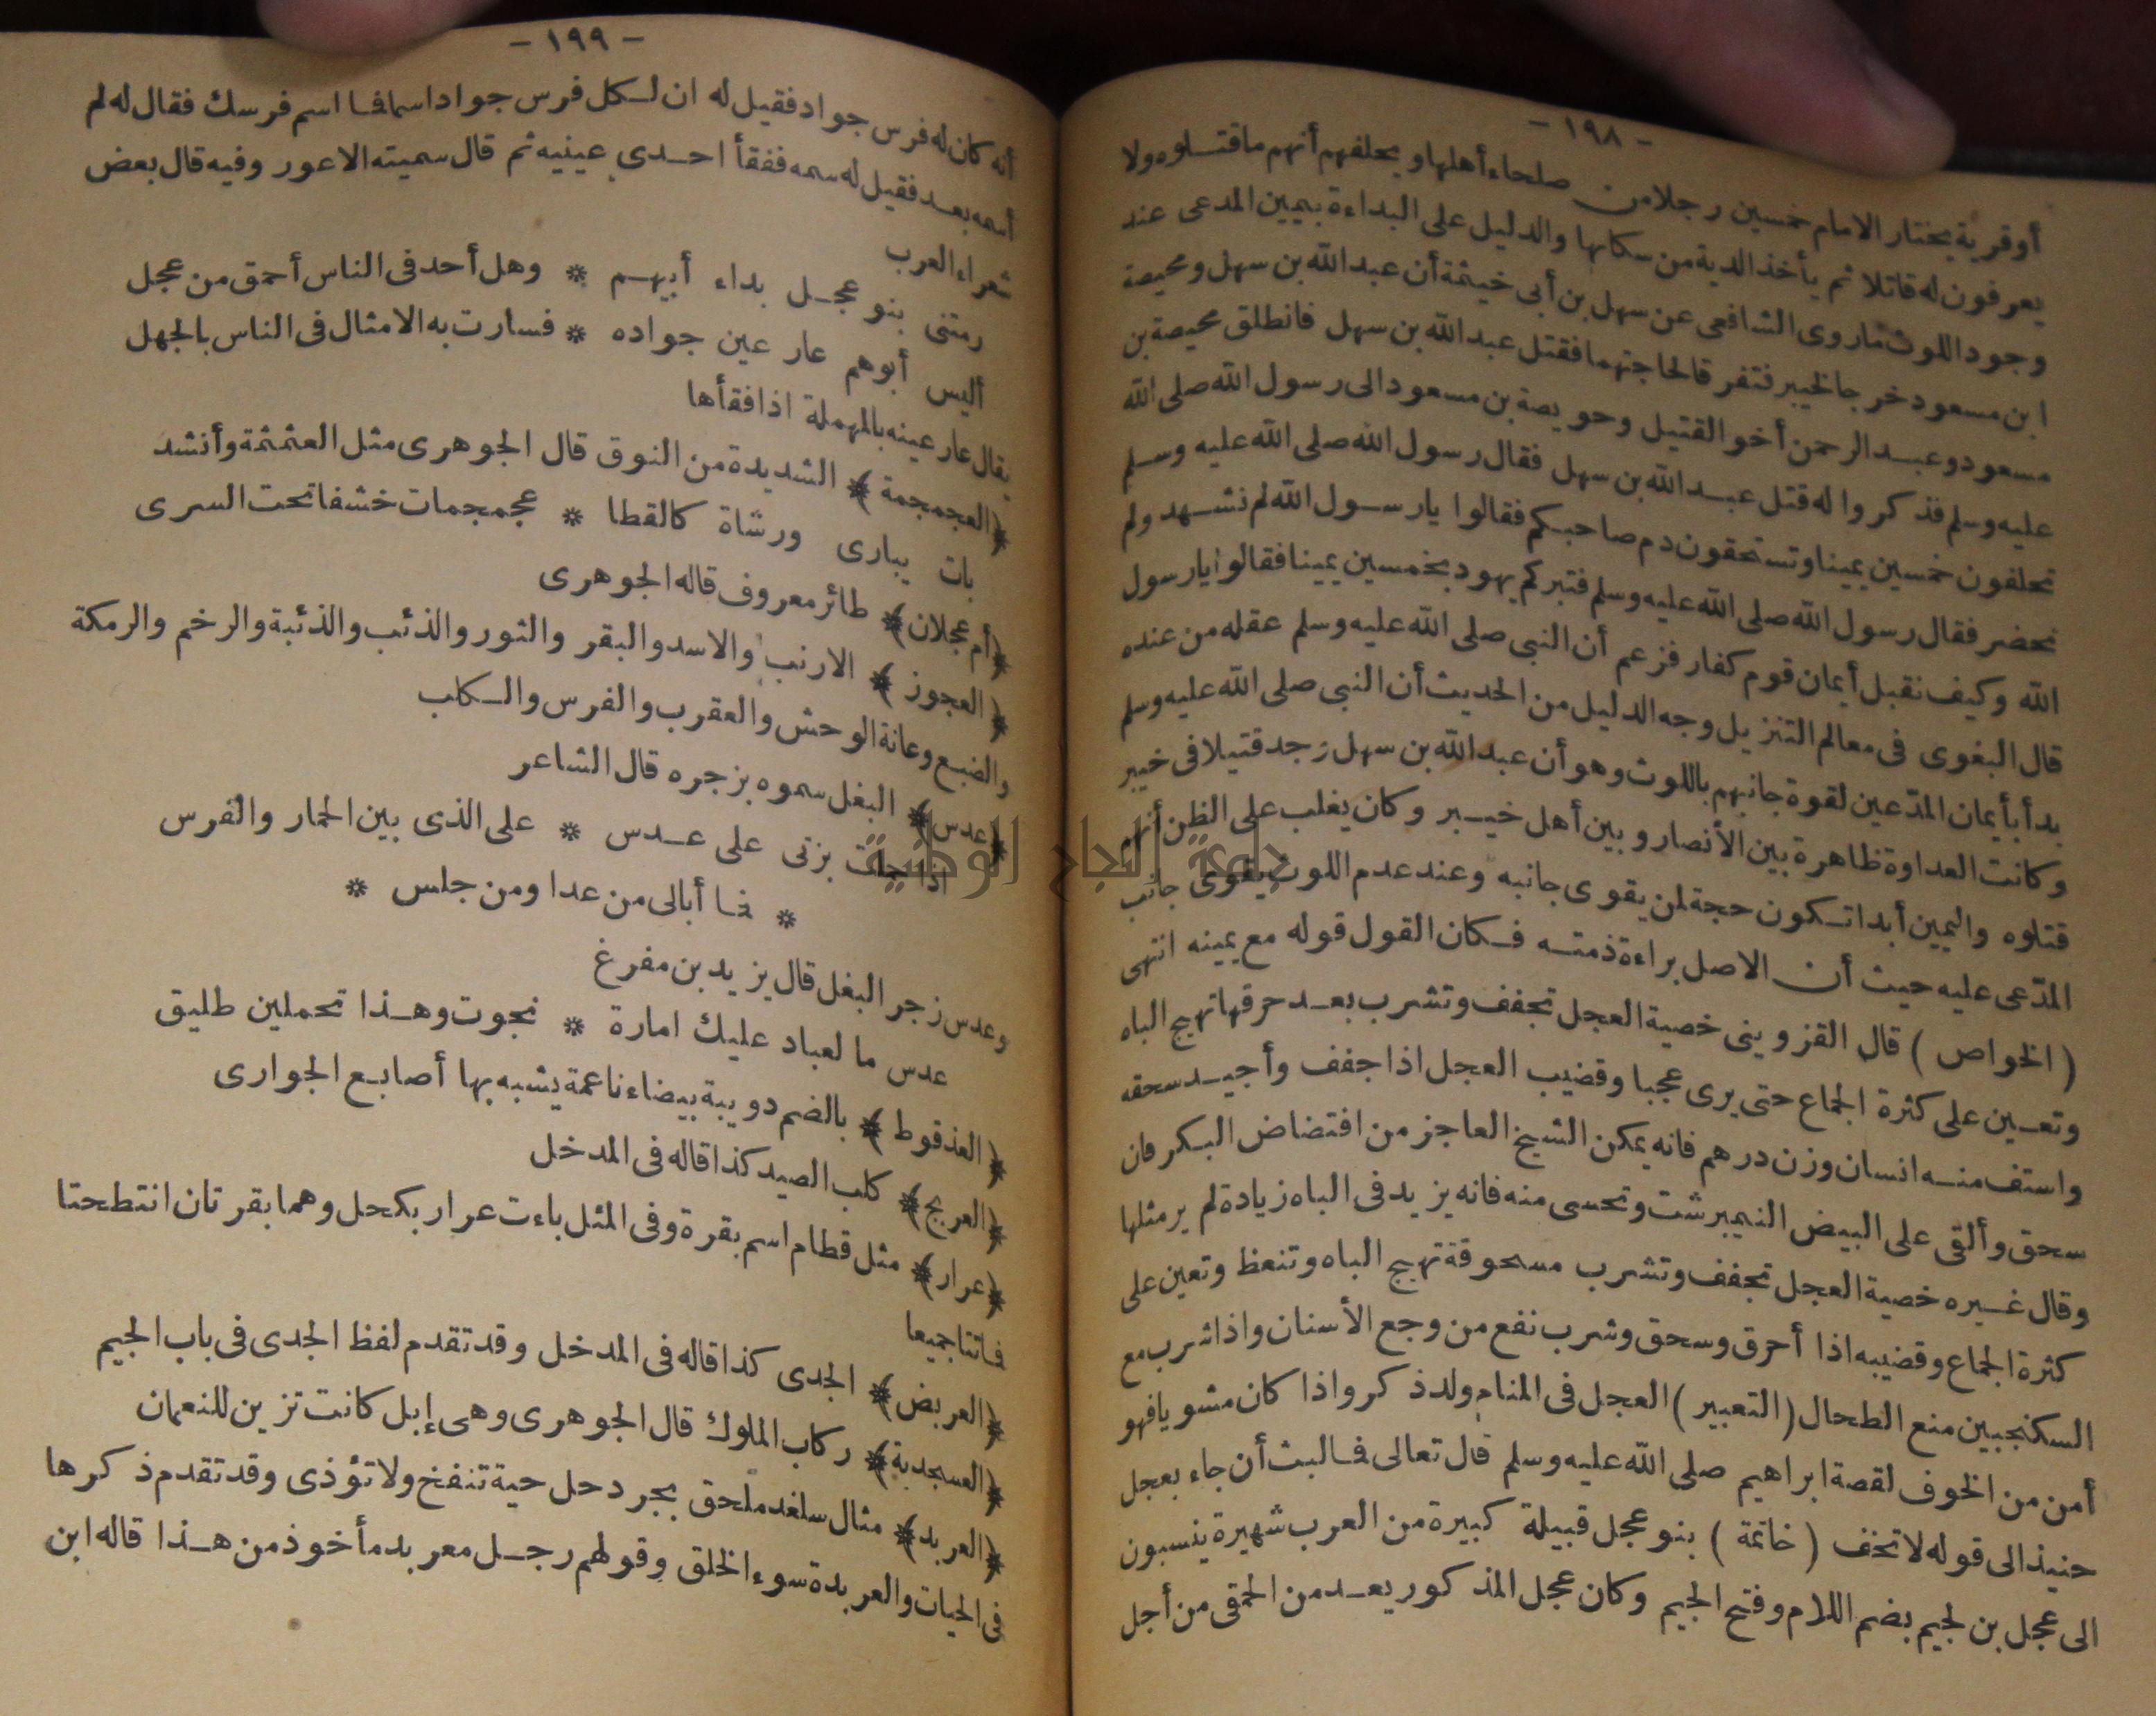 - ١٩٨ -
أو قرية يختار الامام خمسين رجلا من صلحاء أهلها و يحلفهم أنهم ماقتلوه ولا
يعرفون له قاتلا ثم يأخذ الدية من سكانها والدليل على البداءة بيمين المدعى عند
وجود اللوث ماروى الشافعى عن سهل بن أبى خيثمة أن عبد الله بن سهل ومحيصة
ابن مسعود خرجا لخيبر فتفرقا لحاجتهما فقتل عبد الله بن سهل فانطلق محيصة بن
مسعود وعبد الرحمن أخو القتيل وحويصة بن مسعود الى رسول الله صلى الله
عليه وسلم فذكروا له قتل عبد الله بن سهل فقال رسول الله صلى الله عليه وسلم
تحلفون خمسين يمينا وتستحقون دم صاحبكم فقالوا يارسول الله لم نشهد ولم
نحضر فقال رسول الله صلى الله عليه وسلم فتبركم يهود بخمسين يمينا فقالوا يارسول
الله وكيف نقبل أيمان قوم كفار فزعم أن النبى صلى الله عليه وسلم عقله من عنده
قال البغوى فى معالم التنزيل وجه الدليل من الحديث أن النبى صلى الله عليه وسلم
بدأ بأيمان المدّعين لقوة جانبهم باللوث وهو أن عبد الله بن سهل وجد قتيلا فى خيبر
وكانت العداوة ظاهرة بين الأنصار و بين أهل خيبر وكان يغلب على الظن أنهم
قتلوه واليمين أبدا تكون حجة لمن يقوى جانبه وعند عدم اللوث يقوى جانب
المدّعى عليه حيث أن الاصل براءة ذمته فكان القول قوله مع يمينه انتهى
(الخواص) قال القزوينى خصية العجل تجفف وتشرب بعد حرقها تهيج الباه
وتعين على كثرة الجماع حتى يرى عجبا وقضيب العجل اذا جفف وأجيد سحقه
واستف منه انسان وزن درهم فانه يمكن الشيخ العاجز من افتضاض البكر فان
سحق وألقى على البيض النيمبرشت وتحسى منه فانه يزيد فى الباه زيادة لم يرمثلها
وقال غيره خصية العجل تجفف وتشرب مسحوقة تهيج الباه وتنعظ وتعين على
كثرة الجماع وقضيبه اذا أحرق وسحق وشرب نفع من وجع الأسنان واذا شرب مع
السكنجبين منع الطحال (التعبير) العجل فى المنام ولد ذكر واذا كان مشويا فهو
أمن من الخوف لقصة ابراهيم صلى الله عليه وسلم قال تعالى فما لبث أن جاء بعجل
حنيذ الى قوله لاتخف (خاتمة) بنو عجل قبيلة كبيرة من العرب شهيرة ينسبون
الى عجل بن لجيم بضم اللام وفتح الجيم وكان عجل المذكور يعد من الحمقى من أجل
- ١٩٩ -
أنه كان له فرس جواد فقيل له ان لكل فرس جواد اسما فما اسم فرسك فقال له لم
أسمه بعد فقيل له سمه ففقأ احدى عينيه ثم قال سميته الاعور وفيه قال بعض
شعراء العرب
رمتنى بنو عجل بداء أبيهم * وهل أحد فى الناس أحمق من عجل
أليس أبوهم عار عين جواده * فسارت به الامثال فى الناس بالجهل
يقال عار عينه بالمهملة اذا فقأها
﴿العجمجمة﴾ الشديدة من النوق قال الجوهرى مثل العثمثمة وأنشد
بات يبارى ورشاة كالقطا * عجمجمات خشفا تحت السرى
﴿أم عجلان﴾ طائر معروف قاله الجوهرى
﴿العجوز﴾ الارنب والاسد والبقر والثور والذئب والذئبة والرخم والرمكة
والضبع وعانة الوحش والعقرب والفرس والكلب
﴿عدس﴾ البغل سموه بزجره قال الشاعر
اذا حملت بزتى على عدس * على الذى بين الحمار والفرس
* فما أبالى من عدا ومن جلس *
وعدس زجر البغل قال يزيد بن مفرغ
عدس ما لعباد عليك امارة * نجوت وهذا تحملين طليق
﴿العذقوط﴾ بالضم دويبة بيضاء ناعمة يشبه بها أصابع الجوارى
﴿العربج﴾ كلب الصيد كذا قاله فى المدخل
﴿عرار﴾ مثل قطام اسم بقرة وفى المثل باءت عرار بكحل وهما بقرتان انتطحتا
فماتتا جميعا
﴿العريض﴾ الجدى كذا قاله فى المدخل وقد تقدم لفظ الجدى فى باب الجيم
﴿العسجدية﴾ ركاب الملوك قال الجوهرى وهى إبل كانت تزين للنعمان
﴿العربد﴾ مثال سلغد ملحق بجردحل حية تنفخ ولا تؤذى وقد تقدم ذكرها
فى الحيات والعربدة سوء الخلق وقولهم رجل معربد مأخوذ من هذا قاله ابن
جامعة النجاح الوطنية